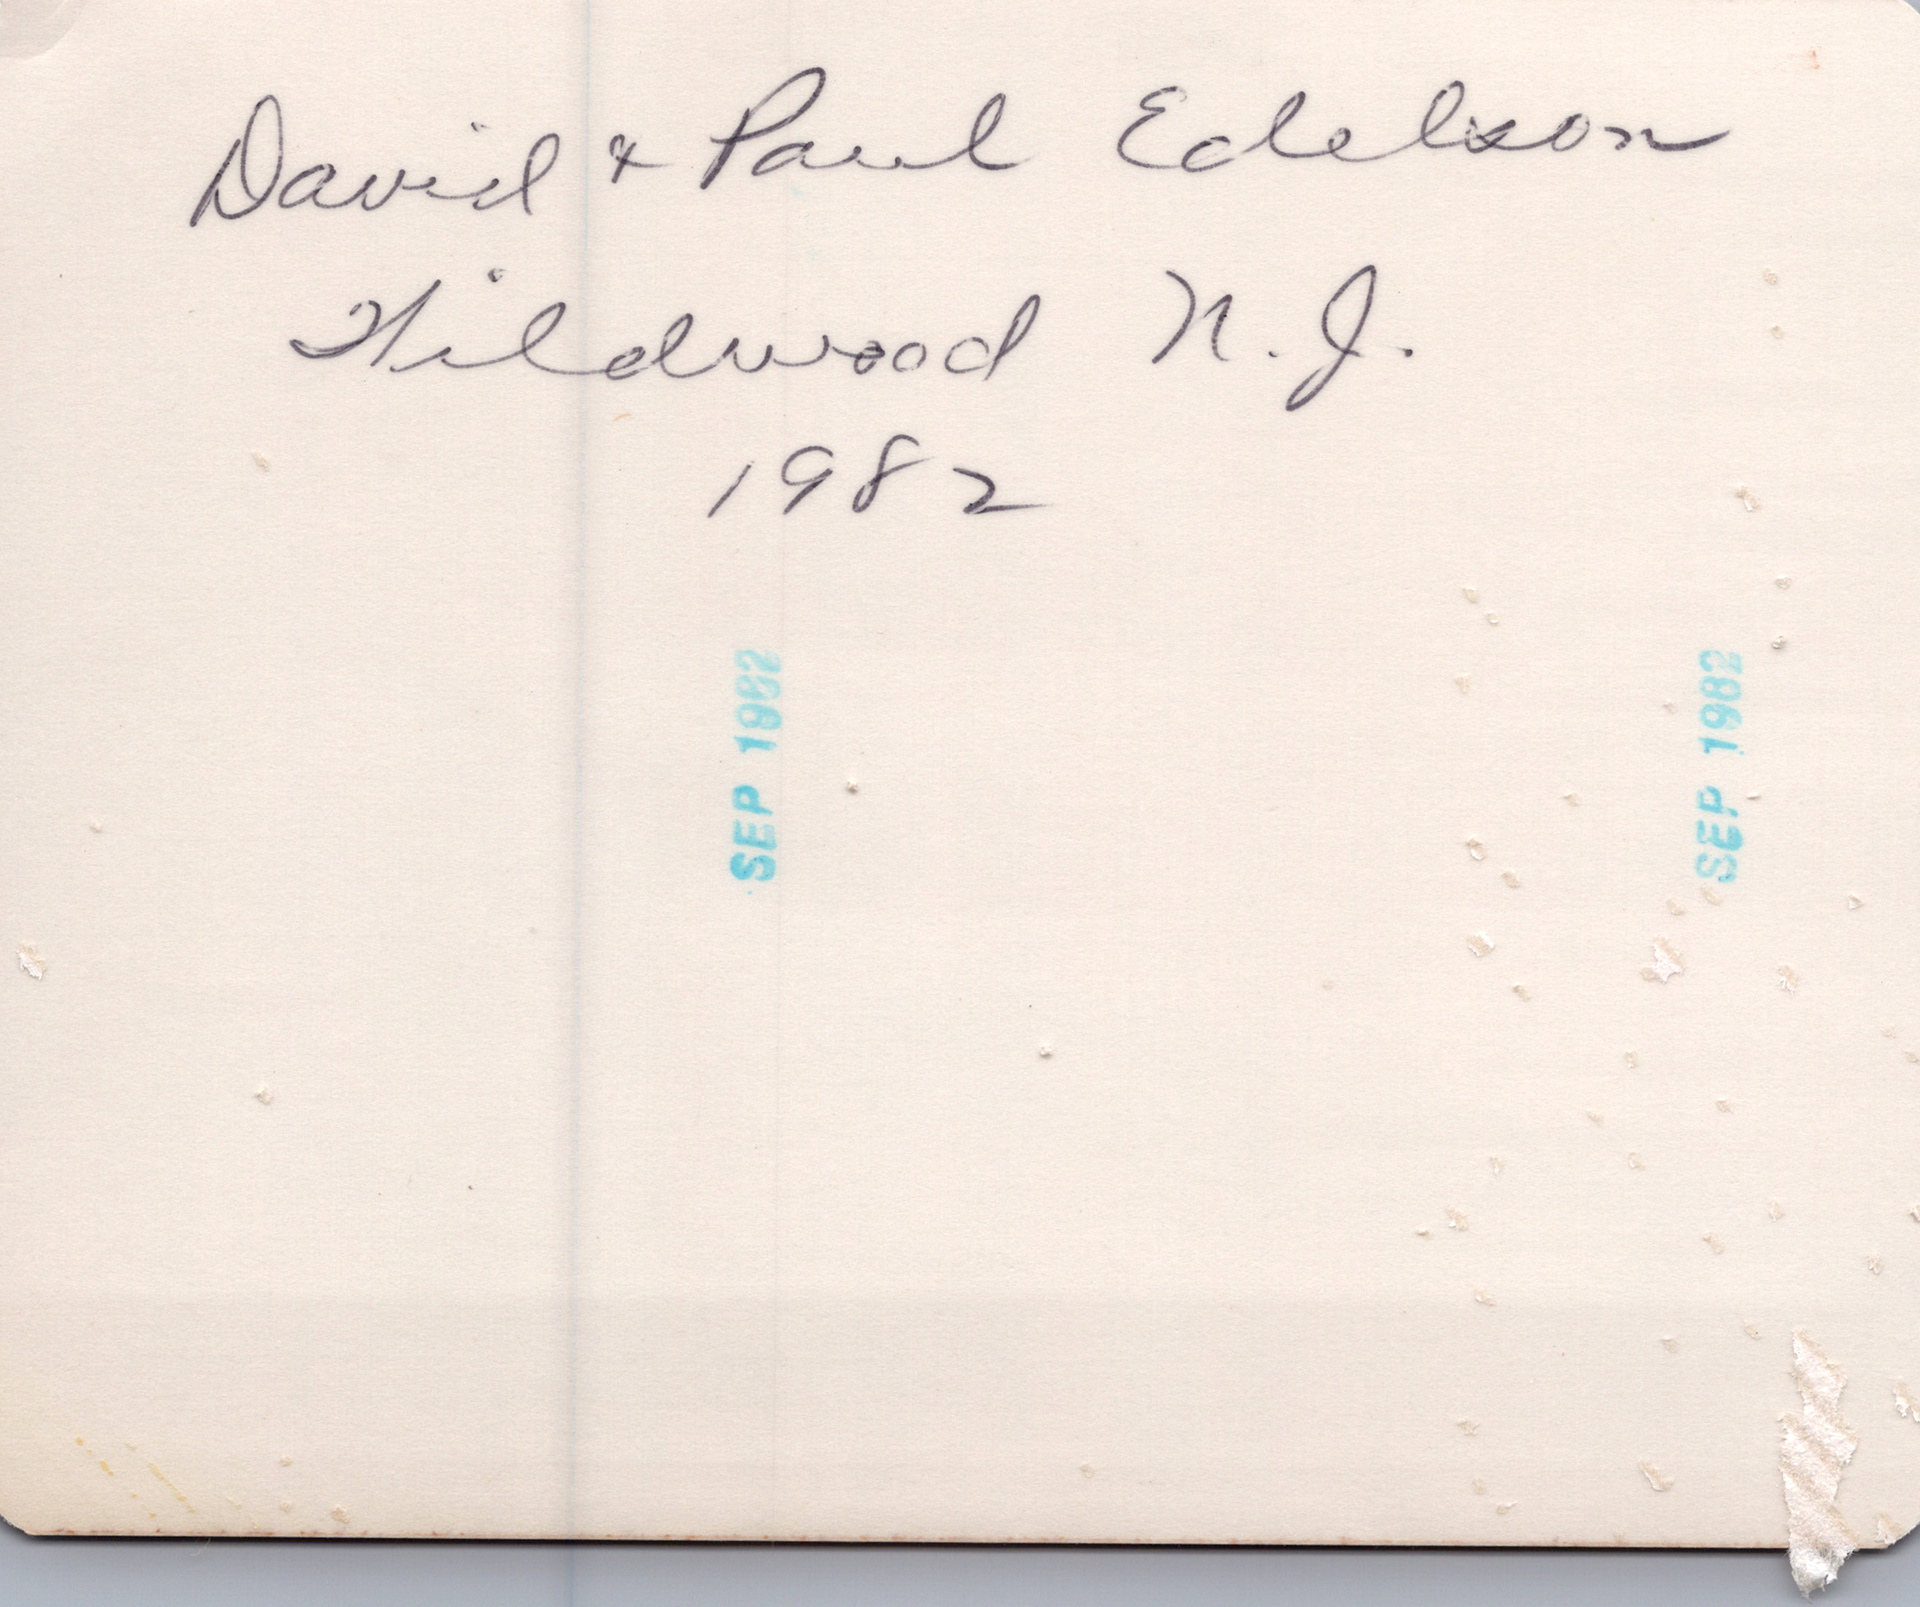 David & Paul Edelson
Wildwood N.J.
1982
SEP 1982
SEP 1982